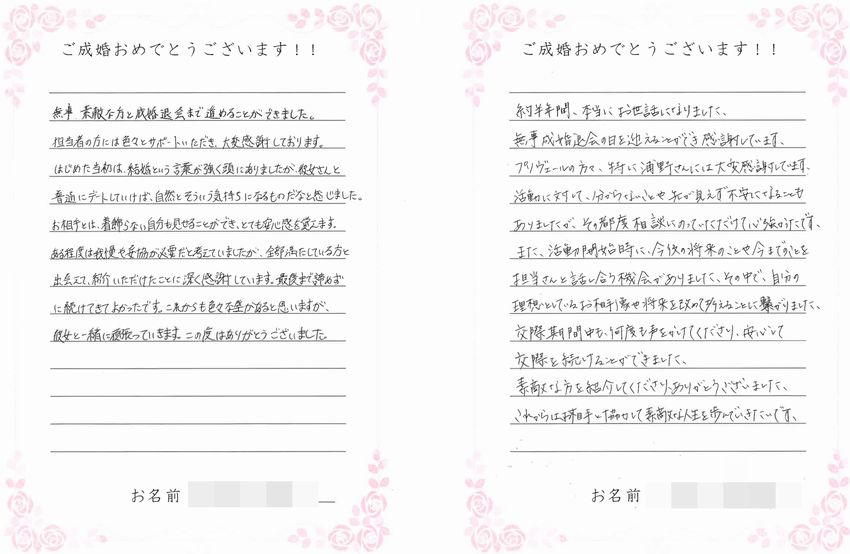 ご成婚おめでとうございます！！
無事 素敵な方と成婚退会まで進めることができました。
担当者の方には色々とサポートいただき、大変感謝しております。
はじめた当初は、結婚という言葉が強く頭にありましたが、彼女さんと
普通にデートしていけば、自然とそういう気持ちになるものだなと感じました。
お相手とは、着飾らない自分も見せることができ、とても安心感を覚えます。
ある程度は我慢や妥協が必要だと考えていましたが、全部満たしている方と
出会えて、紹介いただけたことに深く感謝しています。最後まで諦めず
に続けてきてよかったです。これからも色々な壁があると思いますが、
彼女と一緒に頑張っていきます。この度はありがとうございました。
お名前
ご成婚おめでとうございます！！
約半年間、本当にお世話になりました、
無事成婚退会の日を迎えることができ感謝しています、
プリヴェールの方々、特に浦野さんには大変感謝しています、
活動に対して、分からないことや先が見えず不安になることも
ありましたが、その都度相談にのっていただけて心強かったです、
また、活動開始時に、今後の将来のことや今までのことを
担当さんと話し合う機会がありました、その中で、自分の
理想としているお相手像や将来を改めて考えることに繋がりました、
交際期間中も、何度も声をかけてくださり、安心して
交際を続けることができました、
素敵な方を紹介してくださり、ありがとうございました、
これからはお相手と協力して素敵な人生を歩んでいきたいです、
お名前